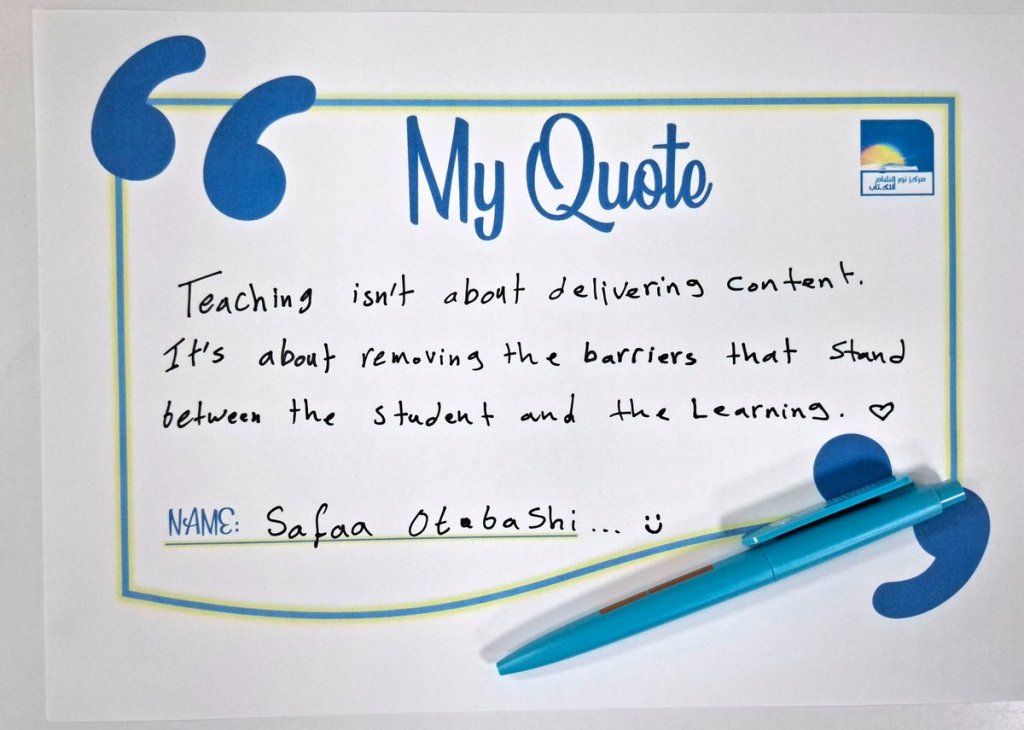 My Quote
مركز نور الشام
للكتاب
Teaching isn't about delivering content.
It's about removing the barriers that stand
between the student and the Learning. ♡
NAME: Safaa Otabashi... ü